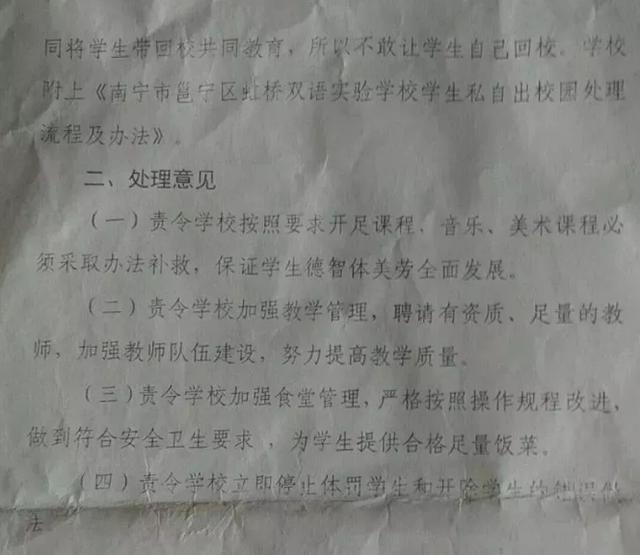 同将学生带回校共同教育，所以不敢让学生自己回校。学校
附上《南宁市邕宁区虹桥双语实验学校学生私自出校园处理
流程及办法》。
二、处理意见
（一）责令学校按照要求开足课程，音乐、美术课程必
须采取办法补救，保证学生德智体美劳全面发展。
（二）责令学校加强教学管理，聘请有资质、足量的教
师，加强教师队伍建设，努力提高教学质量。
（三）责令学校加强食堂管理，严格按照操作规程改进，
做到符合安全卫生要求，为学生提供合格足量饭菜。
（四）责令学校立即停止体罚学生和开除学生的错误做
法